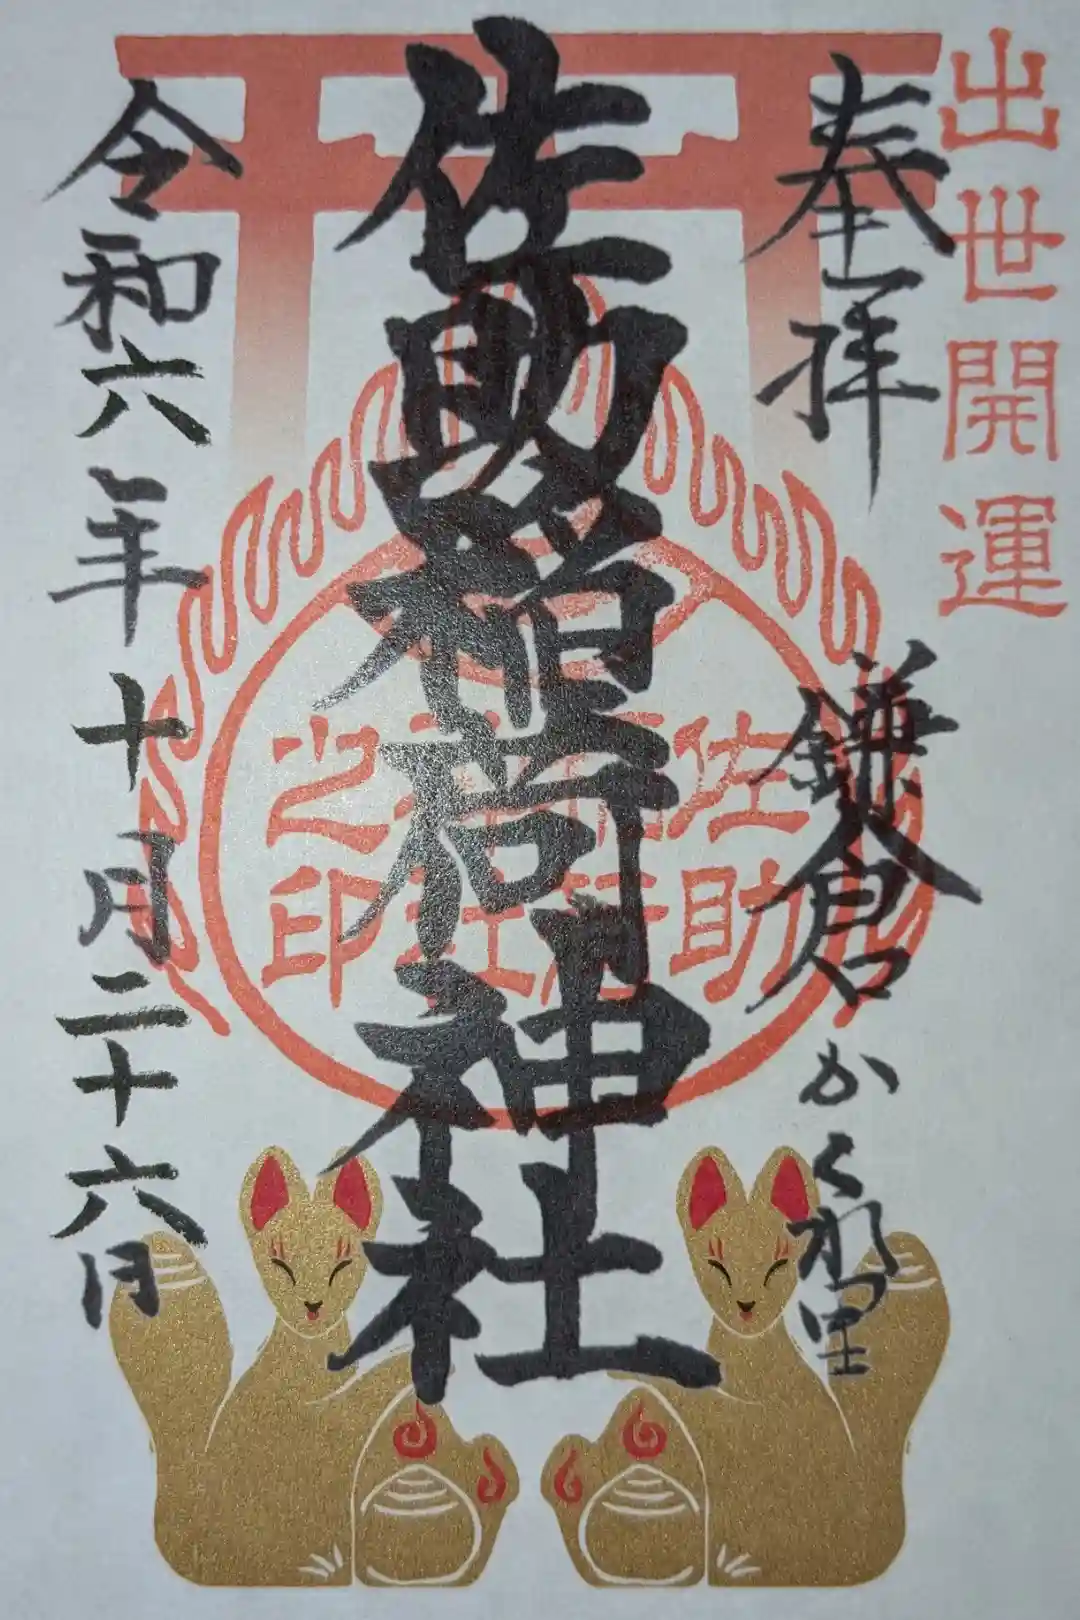 出世開運
奉拝
鎌倉かくれ里
佐助稲荷神社
佐助稲荷神社之印
令和六年十月二十六日